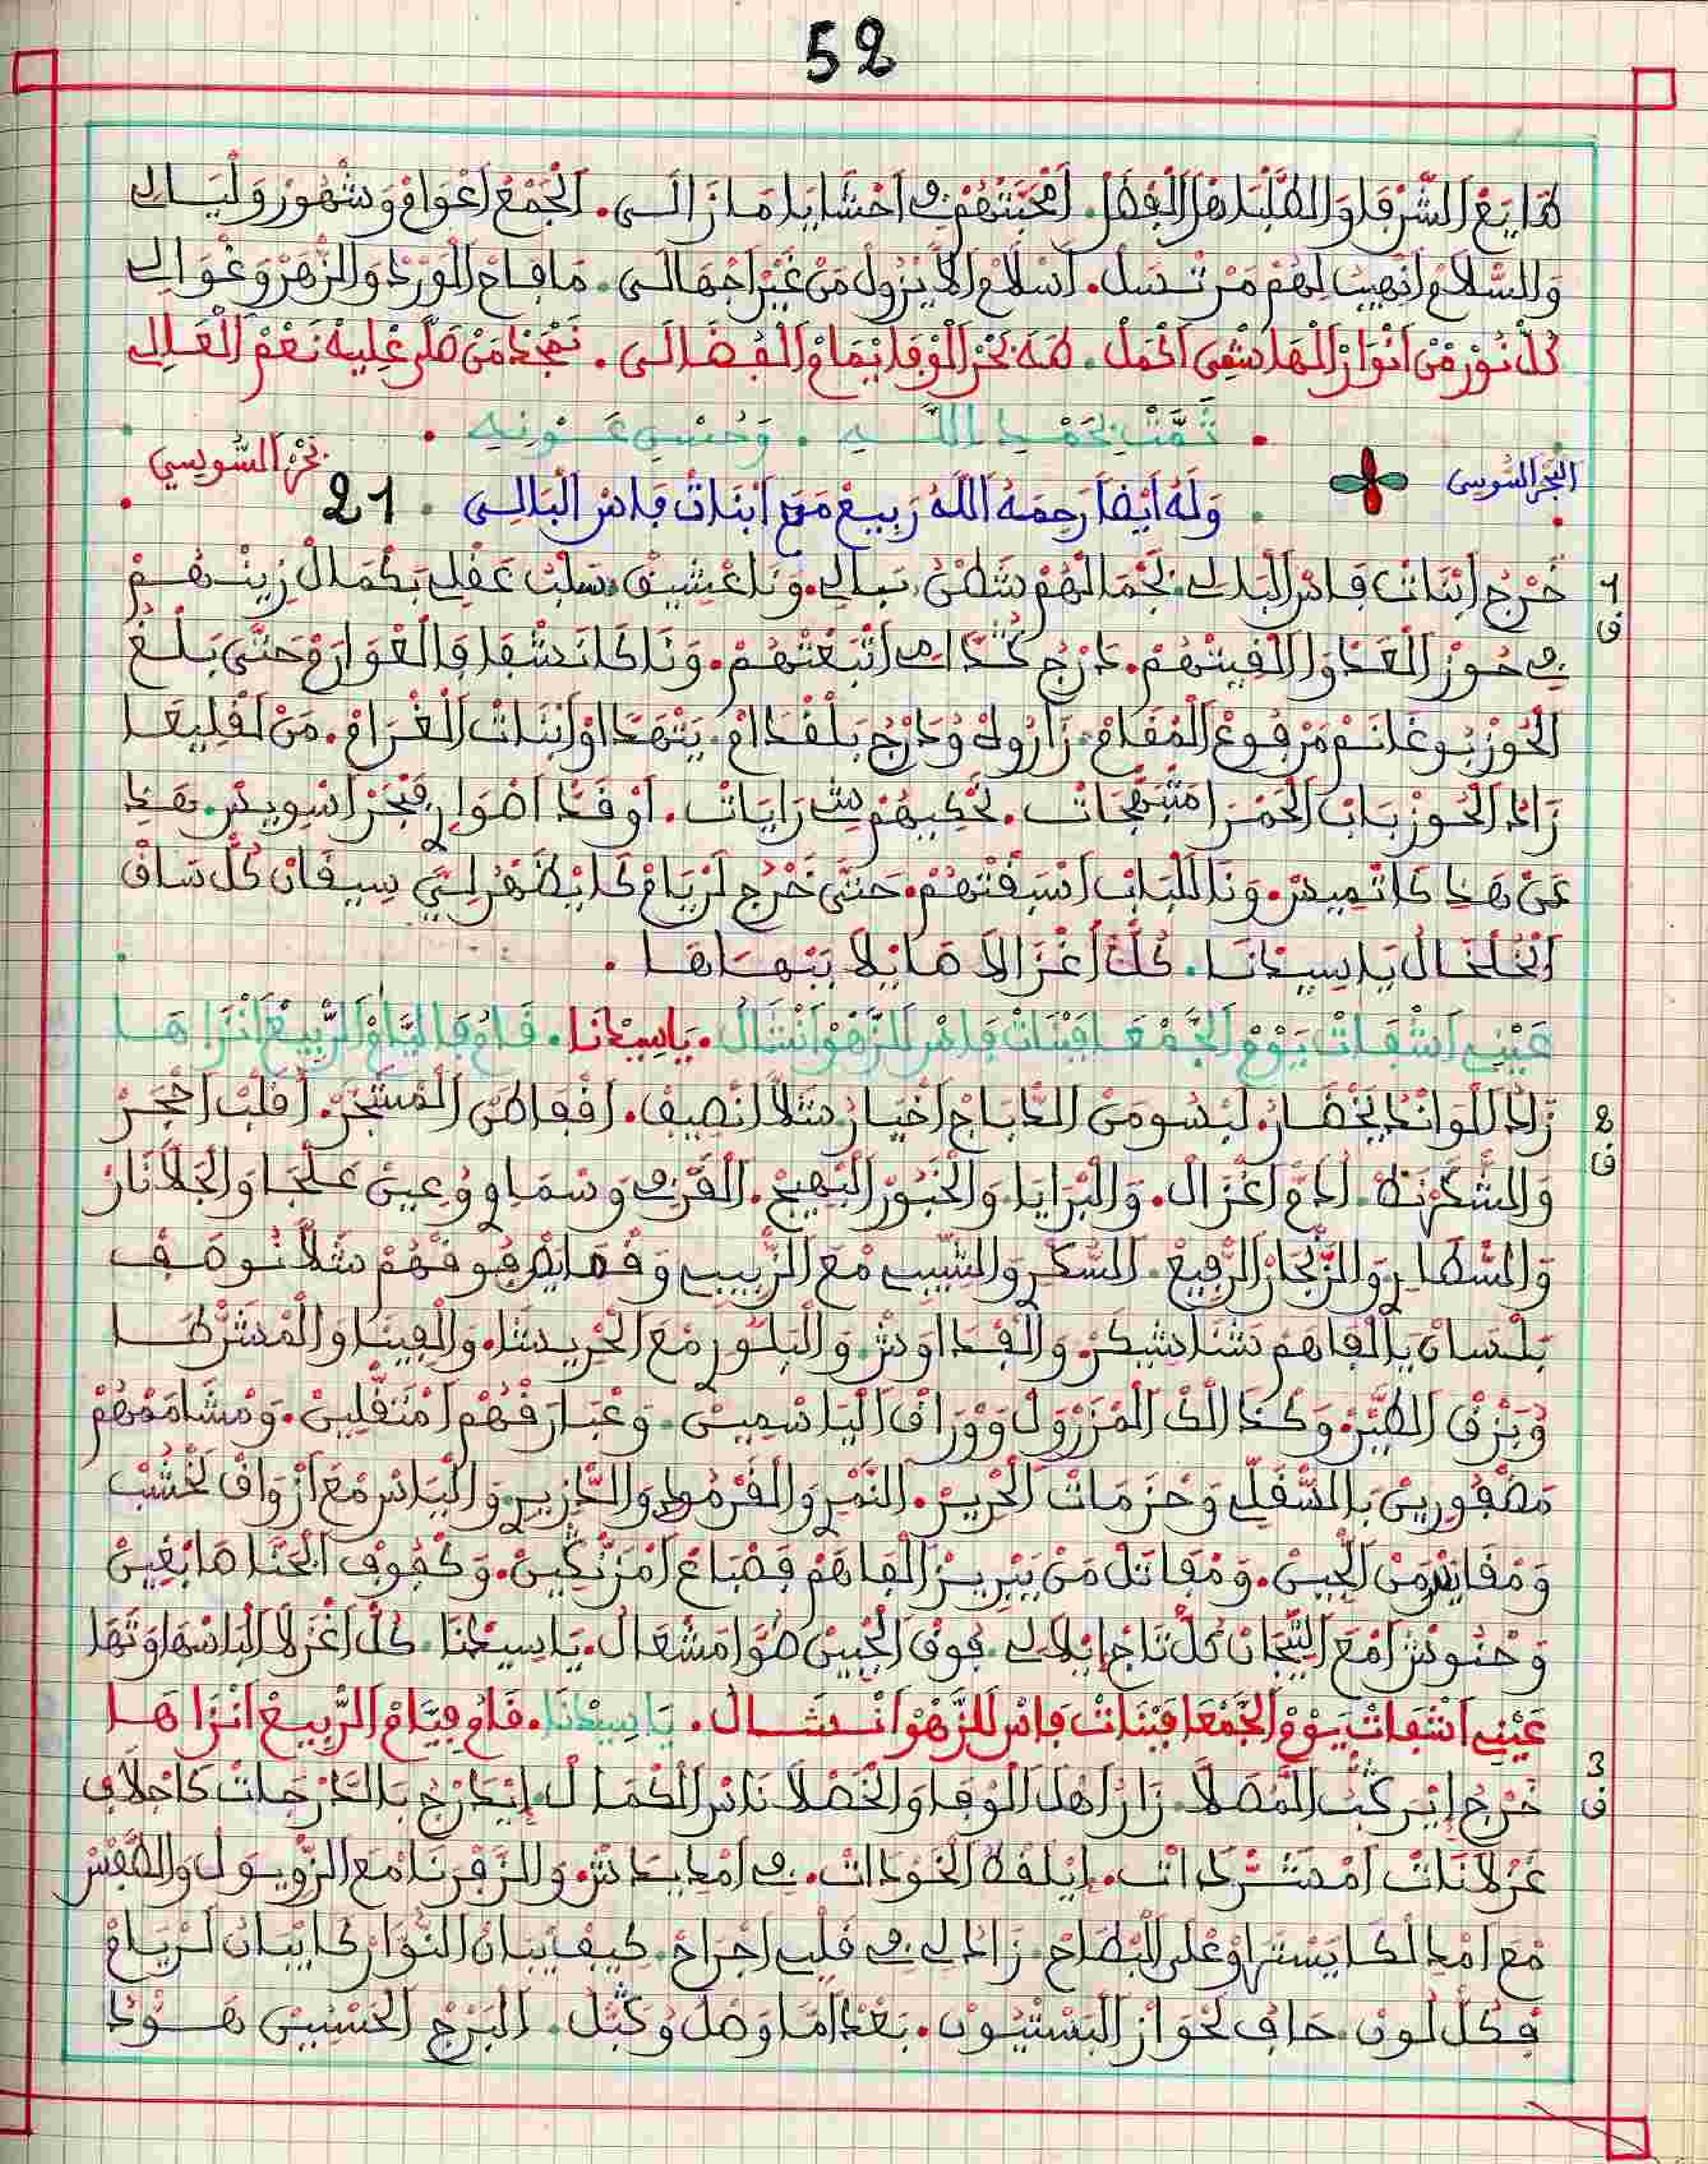 52
طايع الشرفا والطلبا هل الفضل. امحبتهم في احشايا ما زالي. الجمع اعوام وشهور وليالي
والسلام انهيب لهم مرتسل. اسلام لا يزول من غير اجهالي. ما فاح الورد والزهر وغوالي
كل نور من انوار الهاشمي اكمل. طه بحر الوفا يمام الفضالي. نمجد من صلى عليه نعم العالي
تمت بحمد الله. وحسن عونه
البحر السوسي
بحر السويسي
وله ايضا رحمه الله ربيع مع ابنات فاس البالي. 21
1
ف
خرج ابنات فاس البالي. بجمالهم شطن بالي. ونا عشيق. سلب عقلي بكمال زينهم
في حوز العدوا لفيتهم. دارج كدامي اتبعتهم. ونا كانشفا فالغوارم حتى بلغ
الحوز بوغانم مرفوع المقام. زاروه ودارج بلقدام. يتهداو ابنات الغرام. من لقليعا
زاد الحوز باب الحمرا متبهجات. تحكيهم رايات. اوقد اضوار فبحر اسويس. هذا
عن هذا كاتميس. ونا للباب اسبقتهم. حتى خرج لريام كايظهر لي سيقان كل ساق
الخلخال يا سيدنا. كل اغزالا صايلا ببهاها.
عيني اشفات يوم الجمعا فبنات فاس للزهو انشال. يا سيدنا. قام فايام الربيع انزاها
2
ف
زاد للواد يخضار. لبسو من الدباج اخيار شلا انصيف. افقاطن المشجر. اقلب احجر
والشكرنط. ادم اغزال. والبرايا والخبور البهيج. القرفي وسماوي وعين علجا والجلانار
والسطاير والزنجار الرفيع. السكري والشيب مع الزبيب وقمايص فوقهم شلا نوصف
بلسان يالفاهم شنا شيكر. والفداوش والبلور مع الحريشا. والفينا والمشرطا
وبزق الطير. وكذالك المزرول ووراق الياسمين. وعبارقهم امثقلين. ومشامهم
مضفورين بالشقلي وحزمات الحرير. النمير والقرمود والخزير والياس مع ازواق لخشب
ومقايس من الجين. ومفاتل من يبريز الفاهم فصباع امزنكين. وكفوف الحنا صابغين
وحنوش امع التيجان كل تاج ايلالي. فوق الجبين ضوا مشعال. يا سيدنا. كل اغزلا لباسها وتها
عيني اشفات يوم الجمعا فبنات فاس للزهو انشال. يا سيدنا. قام فيام الربيع انزاها
3
ف
خرج ايركب المصلا. زار اهل الوفا والخصلا ناس الكمال. ايدارج بالدارجات كاجلاف
غزلانات امشردات. ايلفه الخودات. في امدادش. والزفرنا مع الزويول والطفس
مع امدا لكايستهاو على البطاح. زادلي في قلبي اجراح. كيف يبان النوار كايبان لريام
فكل لون. حاف لحواز البستيون. بعد اما وصل وكبل. البرج الحسنين هود